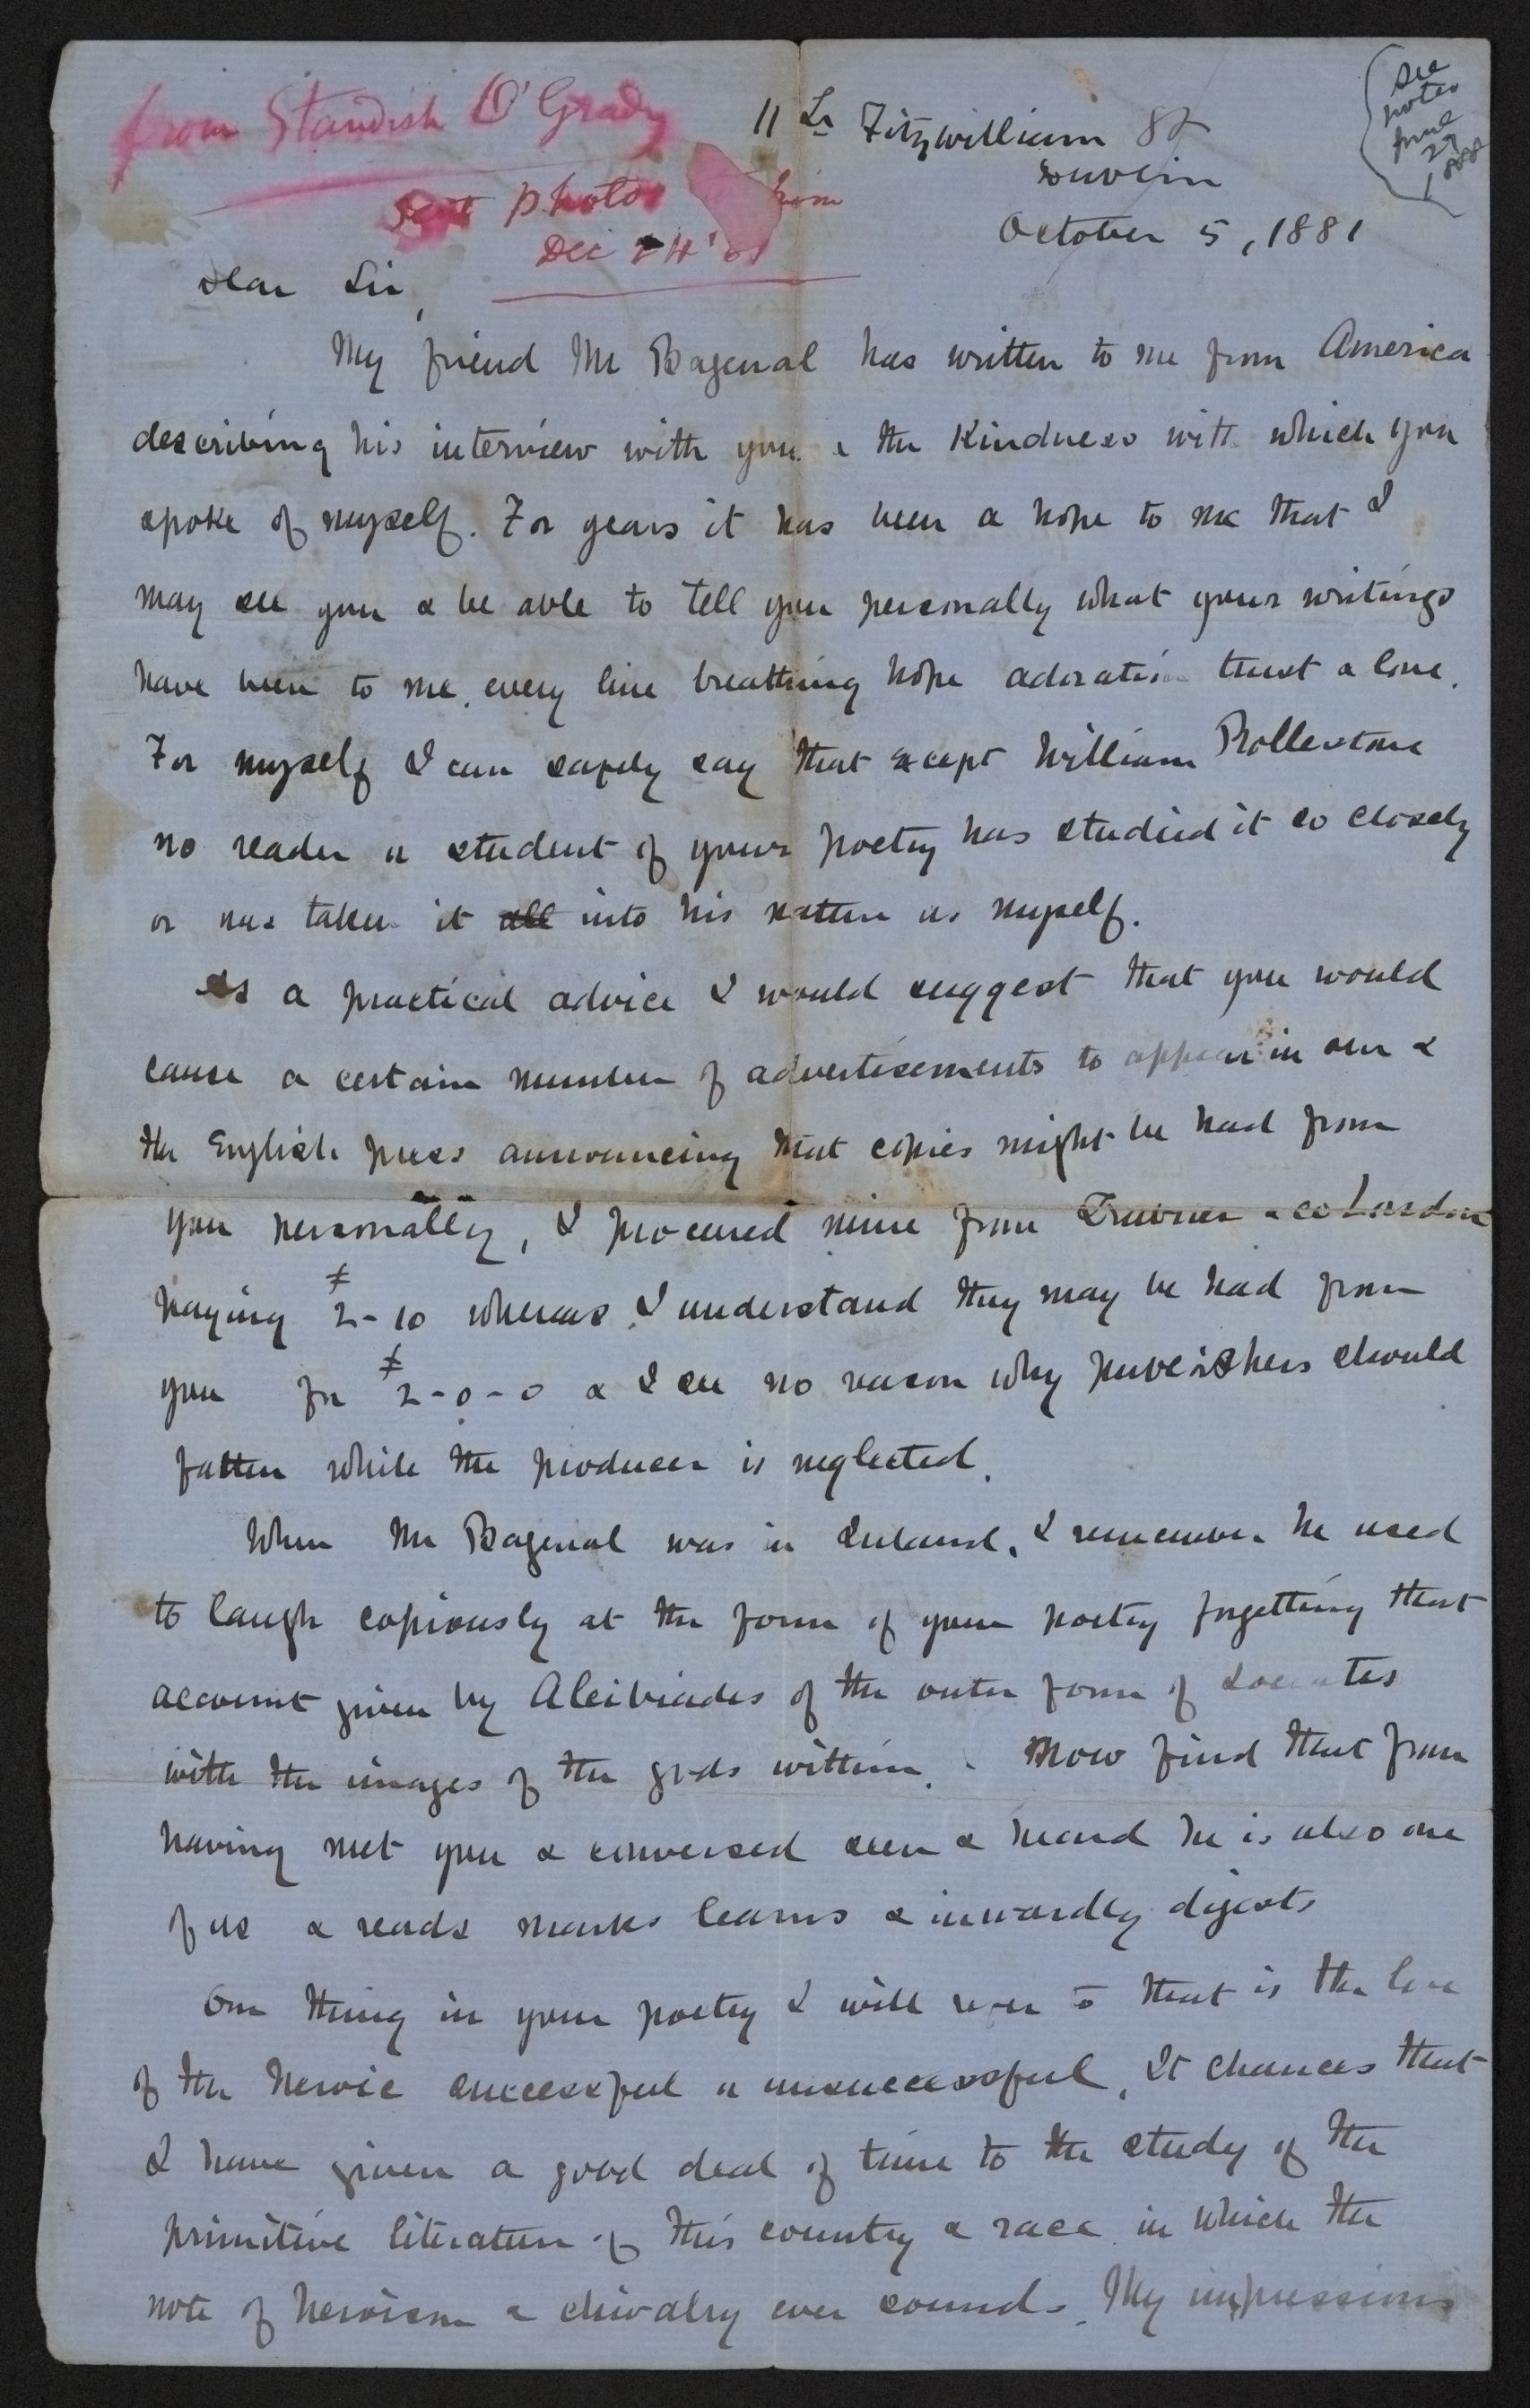 from Standish O'Grady
sent photos him
Dec 24 '81
see
notes
June
27
1888
11 Lr Fitzwilliam St
Dublin
October 5, 1881
Dear Sir,
My friend Mr Bagenal has written to me from America
describing his interview with you & the kindness with which you
spoke of myself. For years it has been a hope to me that I
may see you & be able to tell you personally what your writings
have been to me, every line breathing hope adoration trust & love.
For myself I can safely say that except William Rollestone
no reader or student of your poetry has studied it so closely
or has taken it all into his nature as myself.
As a practical advice I would suggest that you would
cause a certain number of advertisements to appear in our &
the English press announcing that copies might be had from
you personally, I procured mine from Trubner & co London
paying £2-10 whereas I understand they may be had from
you for £2-0-0 & I see no reason why publishers should
fatten while the producer is neglected.
When Mr Bagenal was in Ireland, I remember he used
to laugh copiously at the form of your poetry forgetting that
account given by Alcibiades of the outer form of Socrates
with the images of the gods within. Now find that from
having met you & conversed seen & heard he is also one
of us & reads marks learns & inwardly digests
One thing in your poetry I will refer to that is the love
of the heroic successful or unsuccessful, It chances that
I have given a good deal of time to the study of the
primitive literature of this country & race in which the
note of heroism & chivalry ever sounds. My impressions